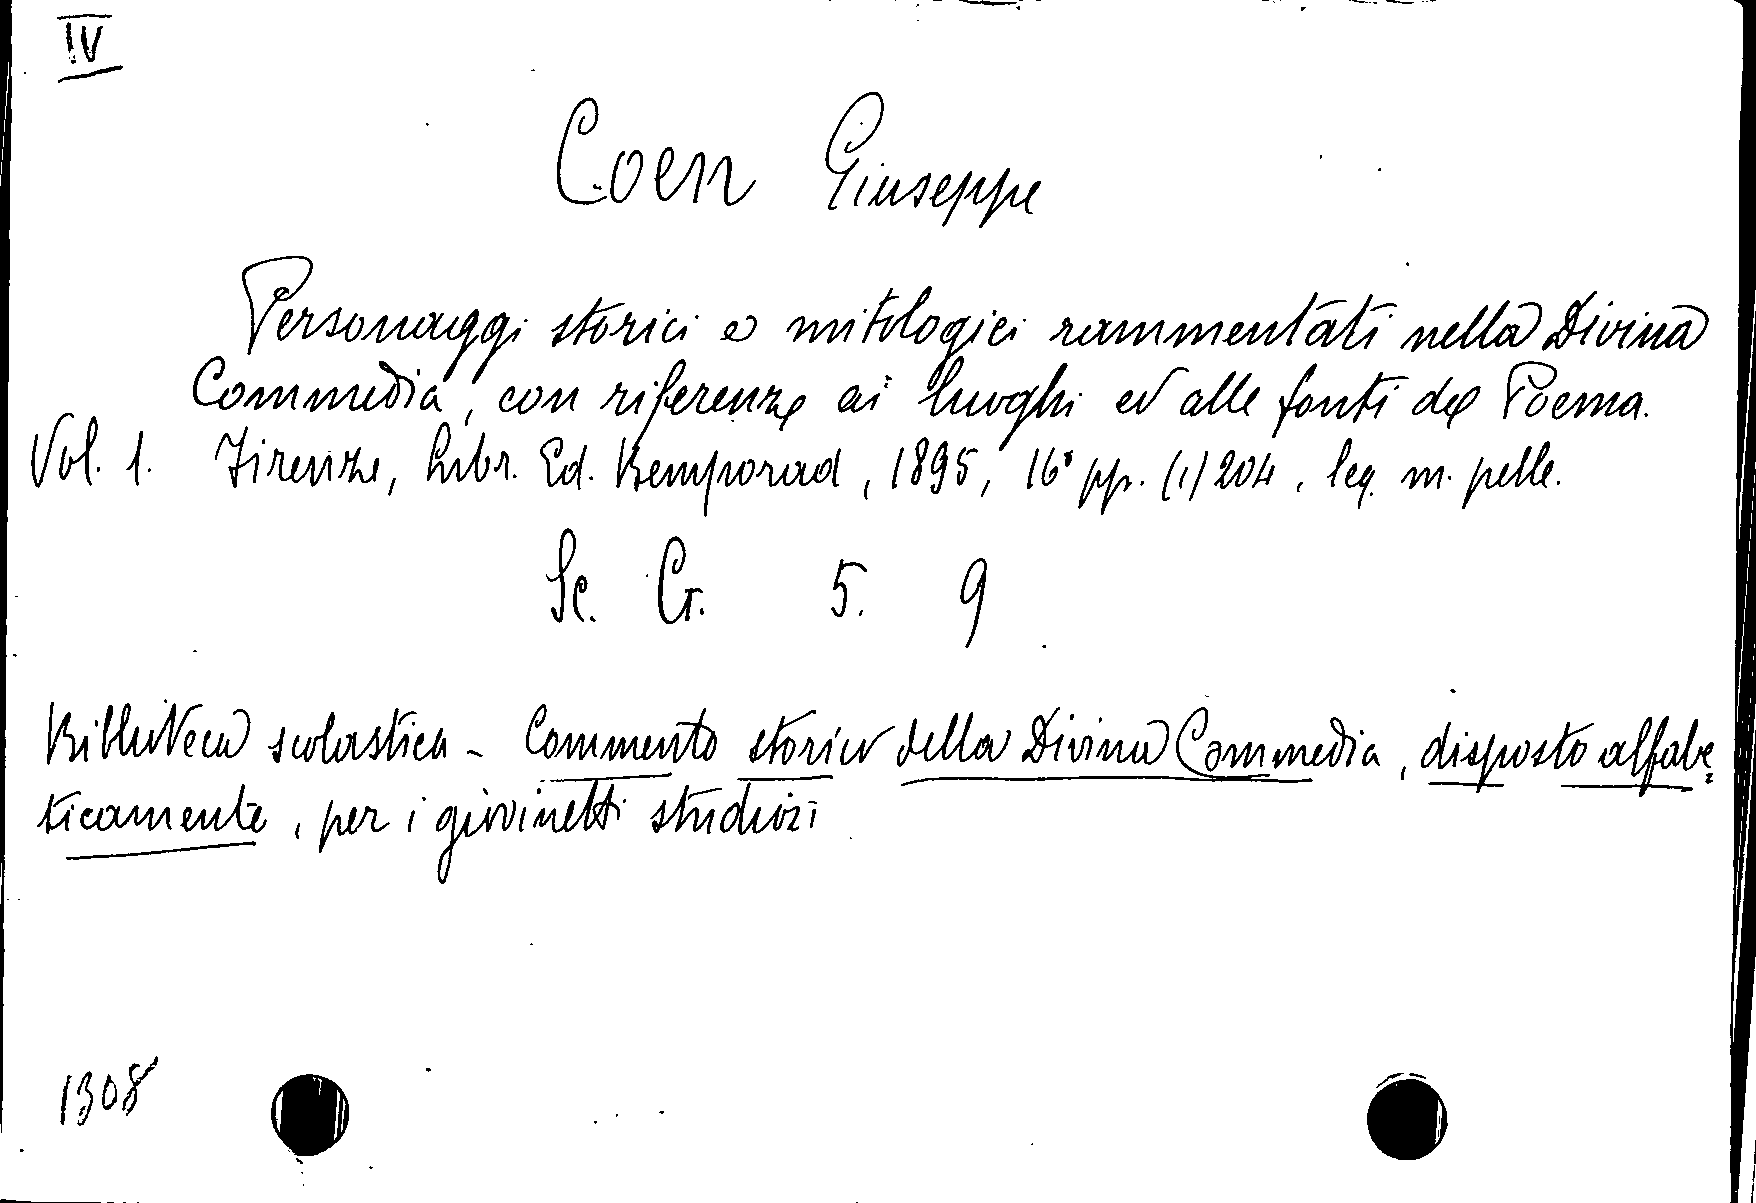 IV
Coen Giuseppe
Personaggi storici e mitologici rammentati nella Divina
Commedia, con riferenze ai luoghi ed alle fonti del Poema.
Vol. 1. Firenze, Libr. Ed. Bemporad, 1895, 16° pp. (1) 204, leg. m. pelle.
Sc. G. 5. 9
Biblioteca scolastica - Commento storico della Divina Commedia, disposto alfabe=
ticamente, per i giovinetti studiosi
1308